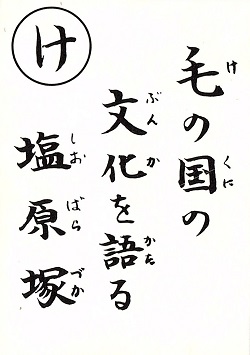 け
毛の国の
文化を語る
塩原塚
け
くに
ぶんか
かた
しおばらづか